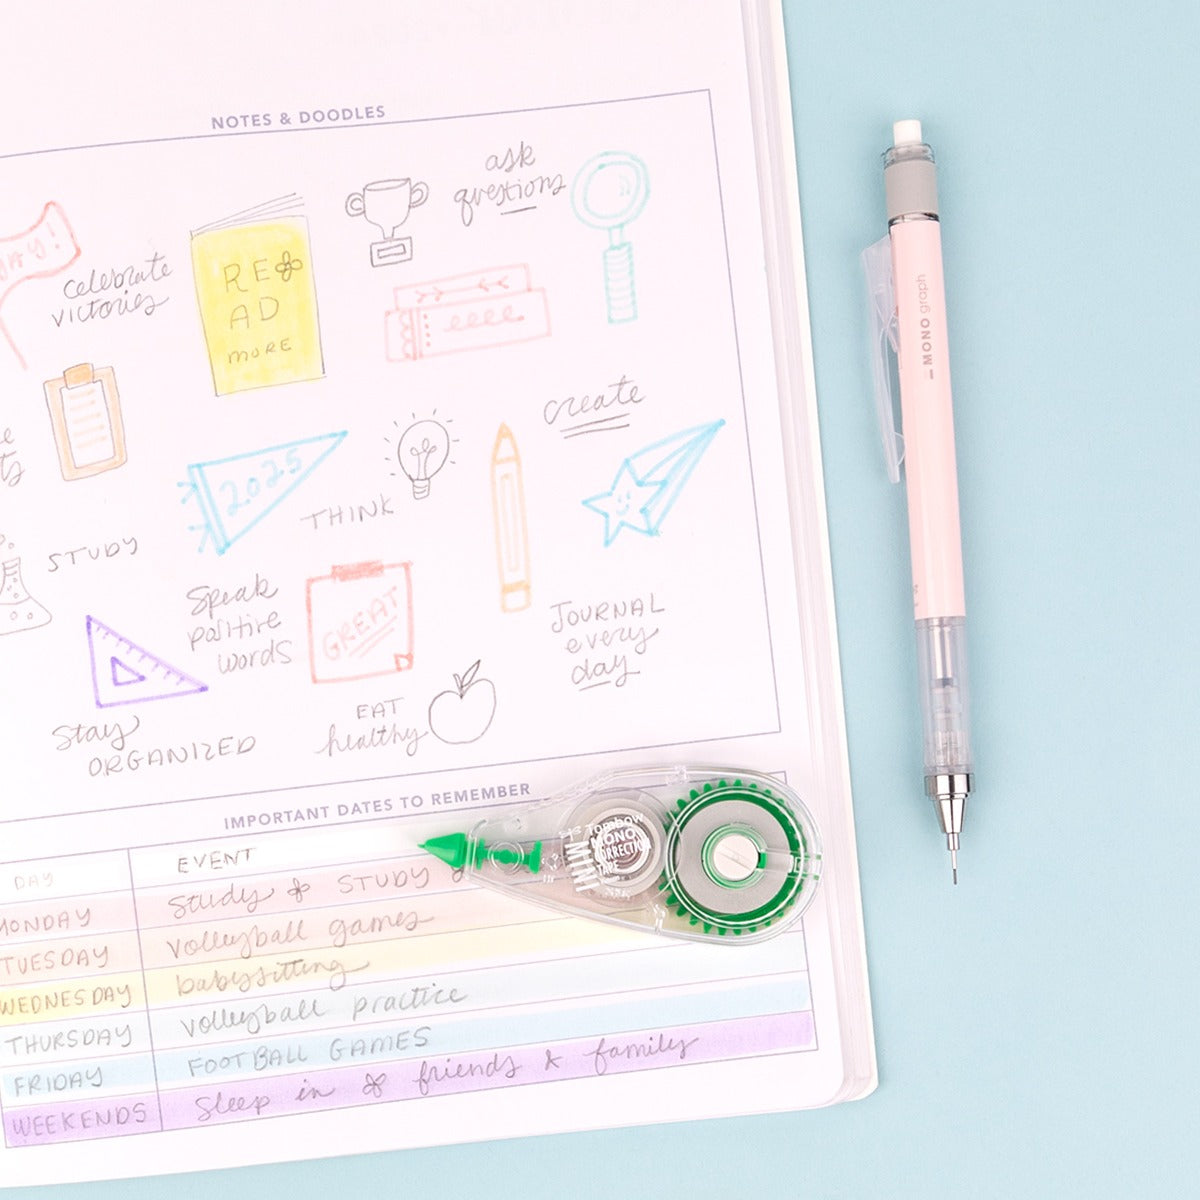 NOTES & DOODLES
ask
questions
celebrate
victories
READ
MORE
create
2025
THINK
STUDY
Speak
positive
words
GREAT
JOURNAL
every
day
EAT
healthy
Stay
ORGANIZED
IMPORTANT DATES TO REMEMBER
DAY EVENT
MONDAY Study & STUDY
TUESDAY volleyball games
WEDNESDAY babysitting
THURSDAY volleyball practice
FRIDAY FOOTBALL GAMES
WEEKENDS Sleep in & friends & family
Tombow
MONO
CORRECTION
TAPE
MINI
MONO graph